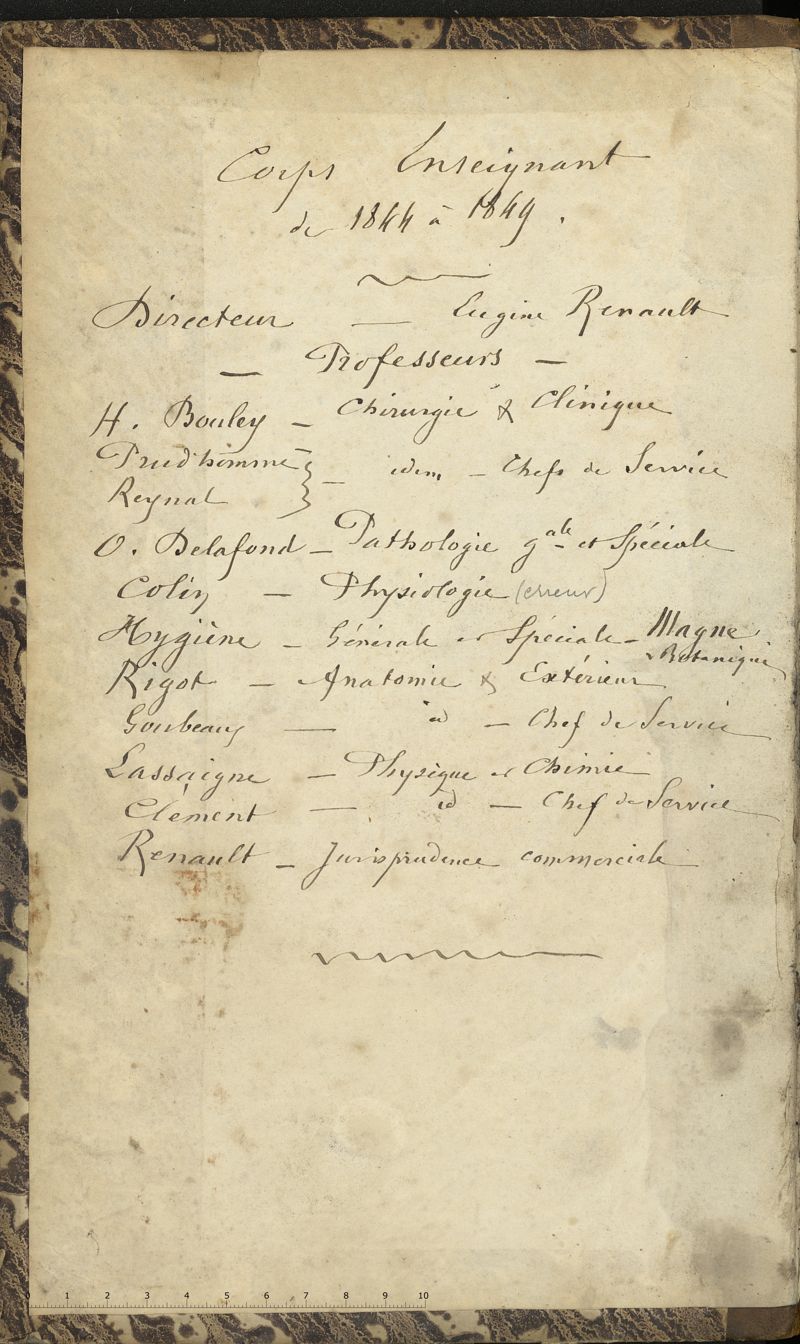 Corps Enseignant
de 1844 à 1849.
Directeur — Eugène Renault
— Professeurs —
H. Bouley — Chirurgie & Clinique
Prud'homme
Reynal } — idem — Chefs de Service
O. Delafond — Pathologie gale et Spéciale
Colin — Physiologie (erreur)
Hygiène — Générale et Spéciale — Magne
& Botanique
Rigot — Anatomie & Extérieur
Goubeaux — id — Chef de Service
Lassaigne — Physique et Chimie
Clément — id — Chef de Service
Renault — Jurisprudence commerciale
0 1 2 3 4 5 6 7 8 9 10